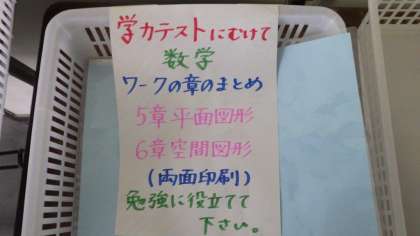 学力テストにむけて
数学
ワークの章のまとめ
5章平面図形
6章空間図形
(両面印刷)
勉強に役立てて
下さい。